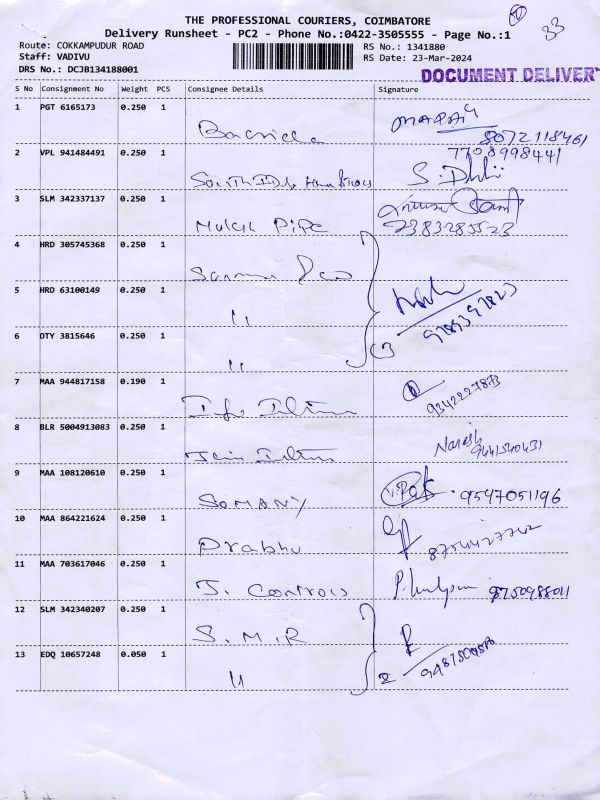 THE PROFESSIONAL COURIERS, COIMBATORE
Delivery Runsheet - PC2 - Phone No.:0422-3505555 - Page No.:1
33
Route: COKKAMPUDUR ROAD
RS No.: 1341880
Staff: VADIVU
RS Date: 23-Mar-2024
DRS No.: DCJB134188001
DOCUMENT DELIVER
S No Consignment No Weight PCS Consignee Details Signature
1 PGT 6165173 0.250 1
8072118461
2 VPL 941484491 0.250 1 South
7708998441
3 SLM 342337137 0.250 1 Mulch Pipe
2383285523
4 HRD 305745368 0.250 1
5 HRD 63100149 0.250 1 "
9789397823
6 OTY 3815646 0.250 1 "
(3
7 MAA 944817158 0.190 1
9342227873
8 BLR 5004913083 0.250 1 Jain
Naresh
9441540431
9 MAA 108120610 0.250 1 SOMANY
9547051196
10 MAA 864221624 0.250 1 Prabhu
11 MAA 703617046 0.250 1 J. Controls
9750988011
12 SLM 342340207 0.250 1 S.M.R
13 EDQ 10657248 0.050 1 "
2